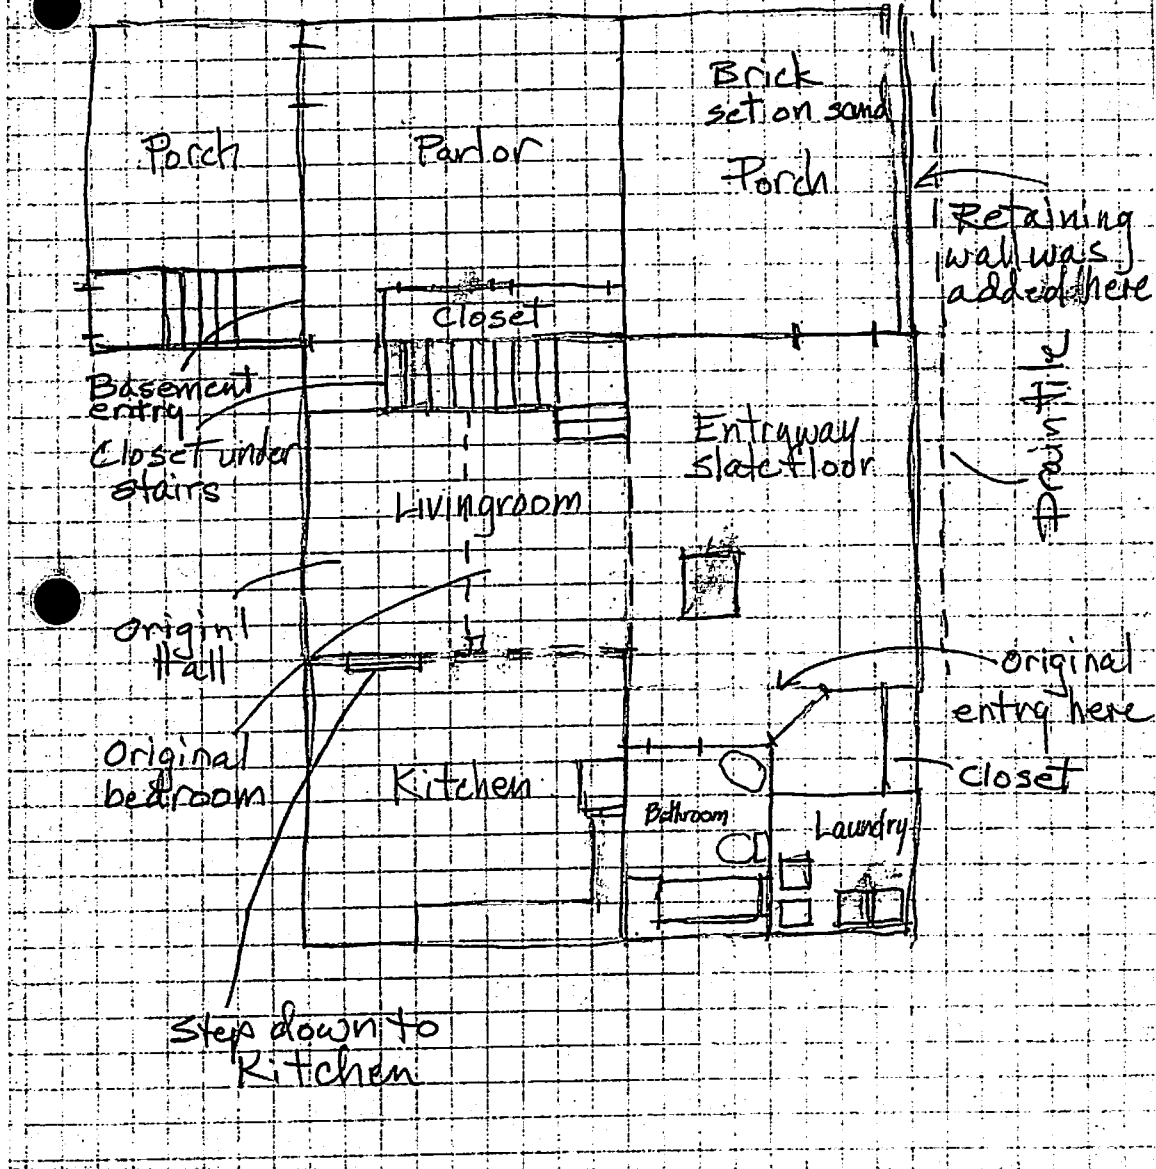 Brick
set on sand
Porch
Parlor
Porch
Retaining
wall was
added here
Closet
Basement
entry
Closet under
stairs
Entryway
slate floor
Drain tile
Livingroom
Originl
Hall
original
entry here
Original
bedroom
Kitchen
Closet
Bathroom
Laundry
Step down to
Kitchen